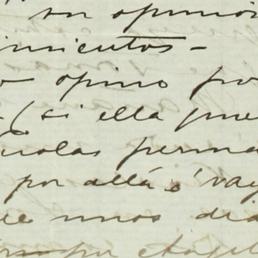 su opinio
imientos —
opino po
( si ella que
colas perma
por allá é vay
ue unos dia